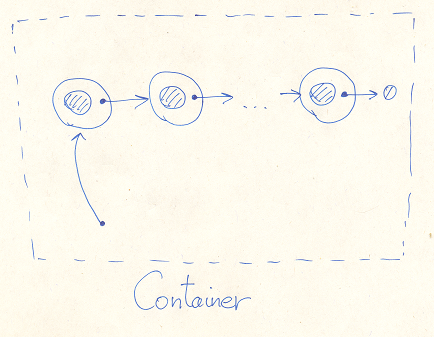 ...
Container